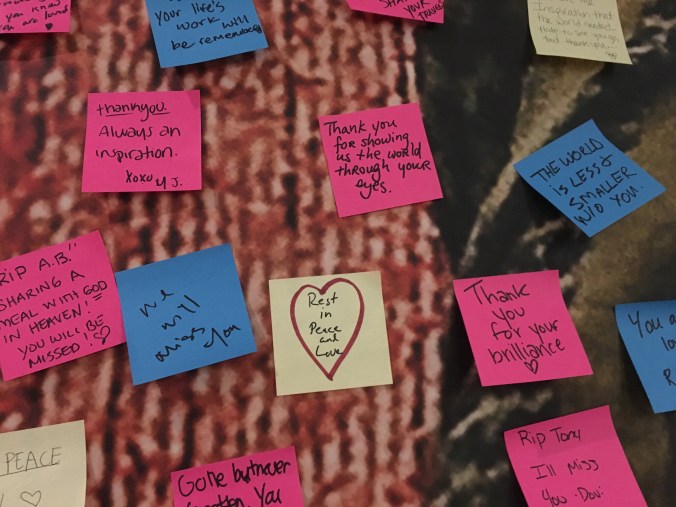 you know
you are loved
your life's
work will
be remembered
SHA
YOUR
Inspiration that
the world needed
thank you.
Always an
inspiration.
xoxo M J.
Thank you
for showing
us the world
through your
eyes.
THE WORLD
is LESS &
SMALLER
W/O YOU.
RIP A.B.!!
SHARING A
MEAL WITH GOD
IN HEAVEN!
YOU WILL BE
MISSED!
we
will
miss
you
Rest
in
Peace
and
Love
Thank
you
for your
brilliance
You a
lo
R
PEACE
Gone but never
forgotten. You
Rip Tony
I'll Miss
You